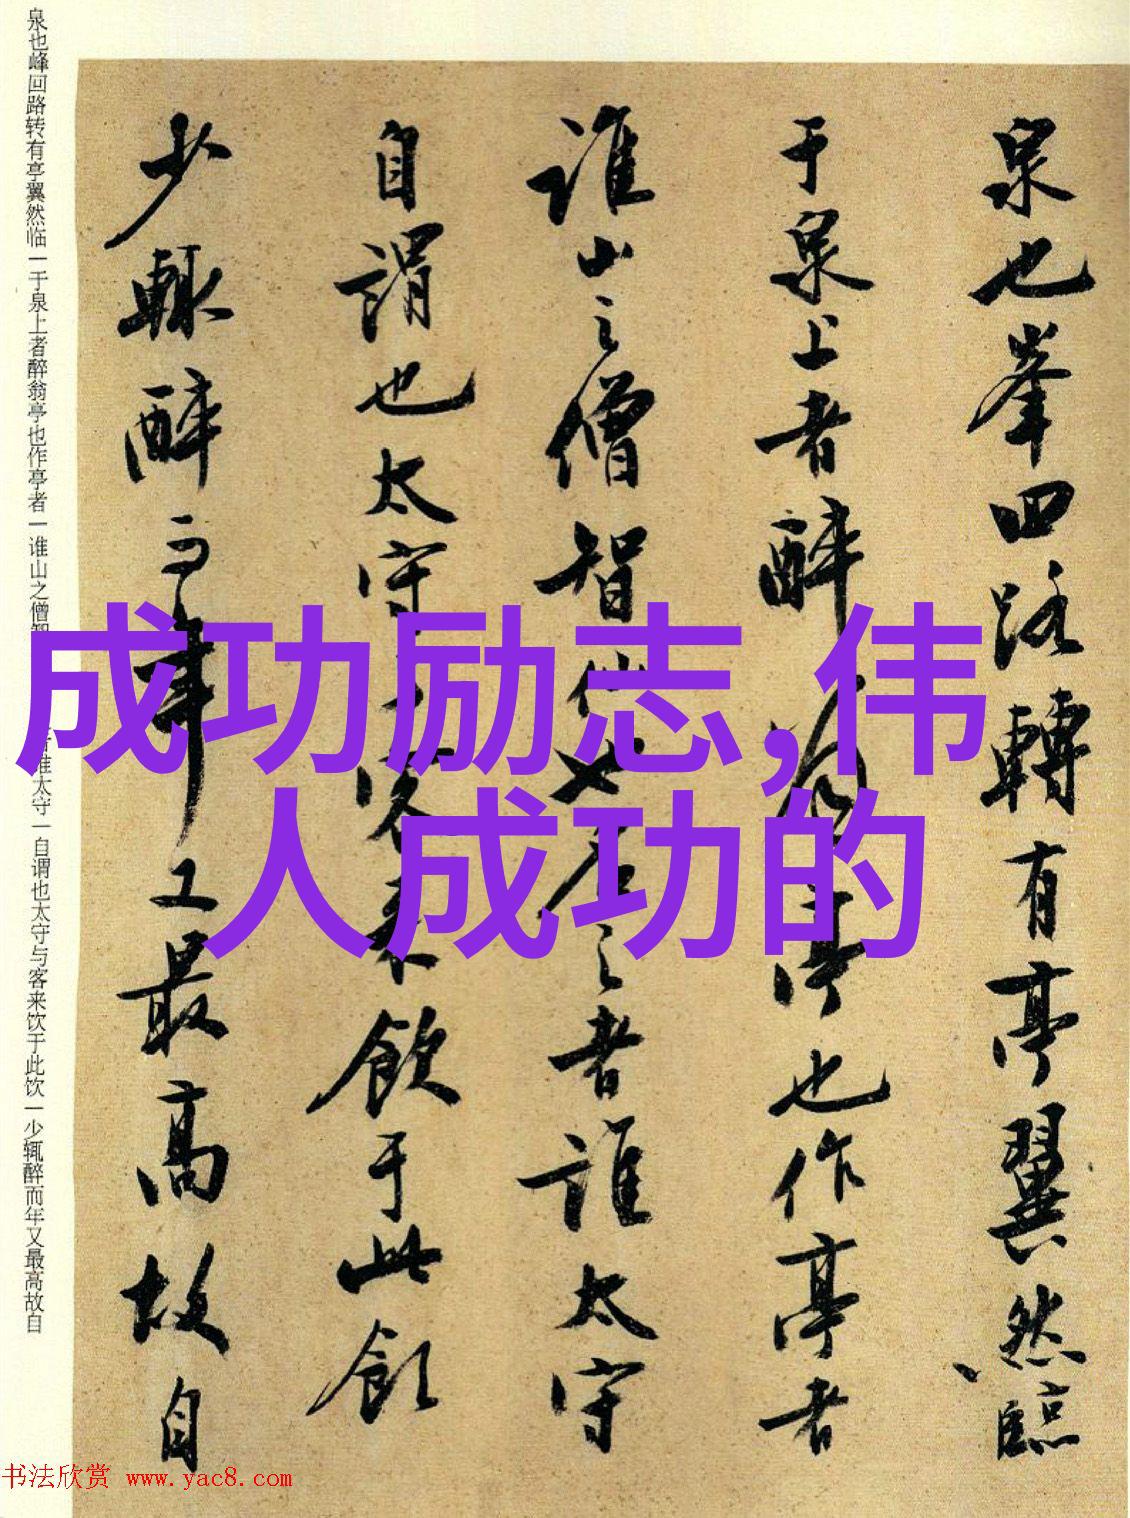 泉也峯回路轉有亭翼然臨
于泉上者醉翁亭也作亭者
誰山之僧智僊也名之者誰太守
自謂也太守与客来飲于此飲
少輒醉而年又最高故自
泉也峰回路转有亭翼然临一于泉上者醉翁亭也作亭者一谁山之僧智
者谁太守一自谓也太守与客来饮于此饮一少辄醉而年又最高故自
成功励志,伟
人成功的
书法欣赏 www.yac8.com